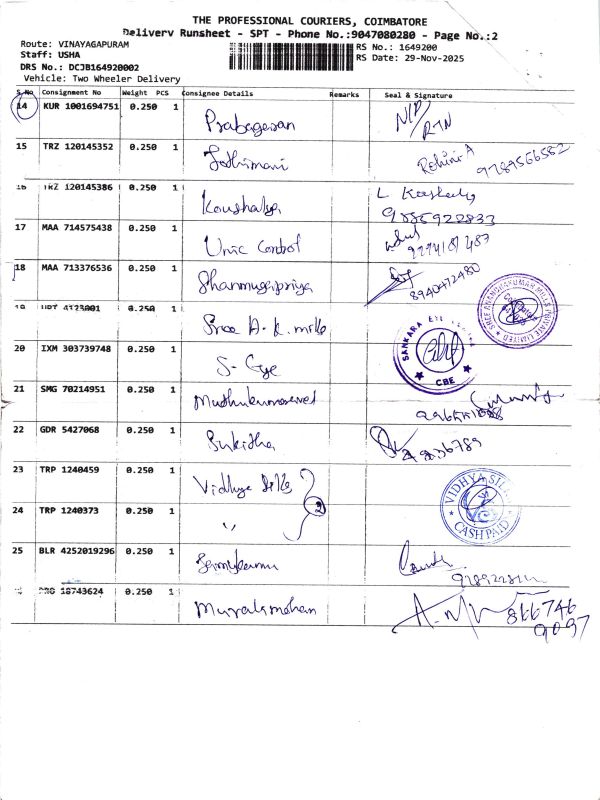 THE PROFESSIONAL COURIERS, COIMBATORE
Delivery Runsheet - SPT - Phone No.:9047080280 - Page No.:2
Route: VINAYAGAPURAM
Staff: USHA
DRS No.: DCJB164920002
Vehicle: Two Wheeler Delivery
RS No.: 1649200
RS Date: 29-Nov-2025
S.No Consignment No Weight PCS Consignee Details Remarks Seal & Signature
14 KUR 1001694751 0.250 1 Prabageran N/P/RTN
15 TRZ 120145352 0.250 1 Jothimani Rohini A 9789566582
16 TRZ 120145386 0.250 1 Koushalya L
17 MAA 714575438 0.250 1 Unic Control
18 MAA 713376536 0.250 1 Shanmugapriya 8940472480
19 4123001 0.250 1 Sree A.K. mills
SREE ANANDHAKUMAR MILLS PRIVATE LIMITED
20 IXM 303739748 0.250 1 S- Eye
SANKARA EYE
CBE
21 SMG 70214951 0.250 1
22 GDR 5427068 0.250 1 Sukitha
23 TRP 1240459 0.250 1 Vidhya Silks 2
VIDHYA SILKS
CASH PAID
24 TRP 1240373 0.250 1 ,,
25 BLR 4252019296 0.250 1
18743624 0.250 1 Muralimohan 866746
9097